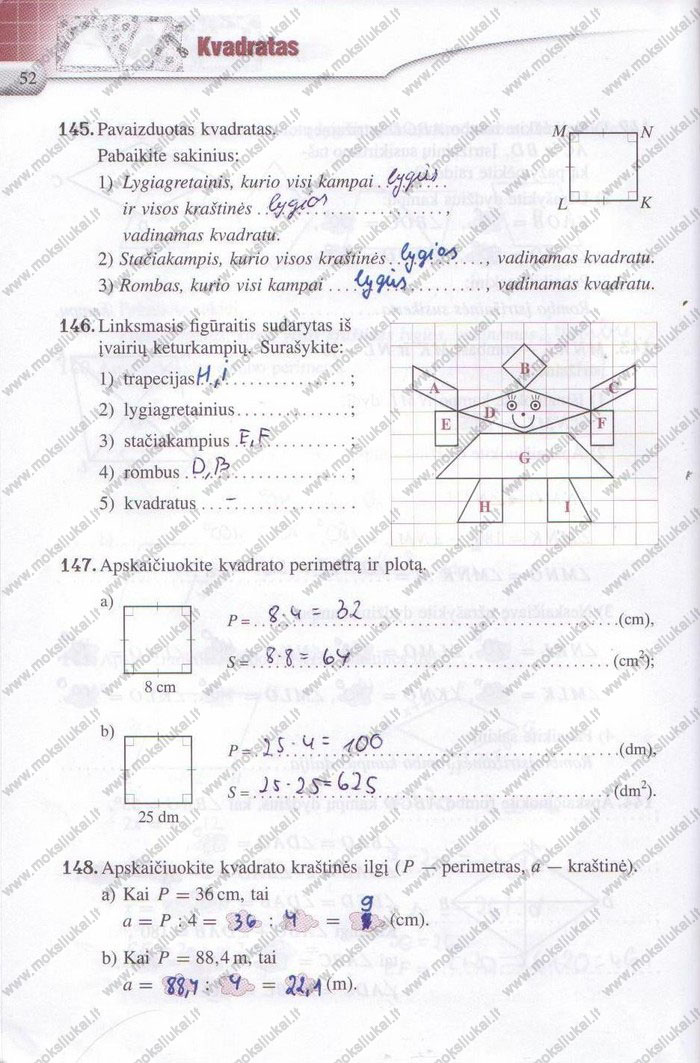 52
Kvadratas
145. Pavaizduotas kvadratas.
Pabaikite sakinius:
M N
L K
1) Lygiagretainis, kurio visi kampai lygūs
ir visos kraštinės lygios,
vadinamas kvadratu.
2) Stačiakampis, kurio visos kraštinės lygios, vadinamas kvadratu.
3) Rombas, kurio visi kampai lygūs, vadinamas kvadratu.
146. Linksmasis figūraitis sudarytas iš
įvairių keturkampių. Surašykite:
1) trapecijas H, i;
2) lygiagretainius;
3) stačiakampius E, F;
4) rombus D, B;
5) kvadratus -
B
A C
D
E F
G
H I
147. Apskaičiuokite kvadrato perimetrą ir plotą.
a)
P = 8·4 = 32 (cm),
S = 8·8 = 64 (cm²);
8 cm
b)
P = 25·4 = 100 (dm),
S = 25·25 = 625 (dm²).
25 dm
148. Apskaičiuokite kvadrato kraštinės ilgį (P — perimetras, a — kraštinė).
a) Kai P = 36 cm, tai
a = P : 4 = 36 : 4 = 9 (cm).
b) Kai P = 88,4 m, tai
a = 88,4 : 4 = 22,1 (m).
www.moksliukai.lt